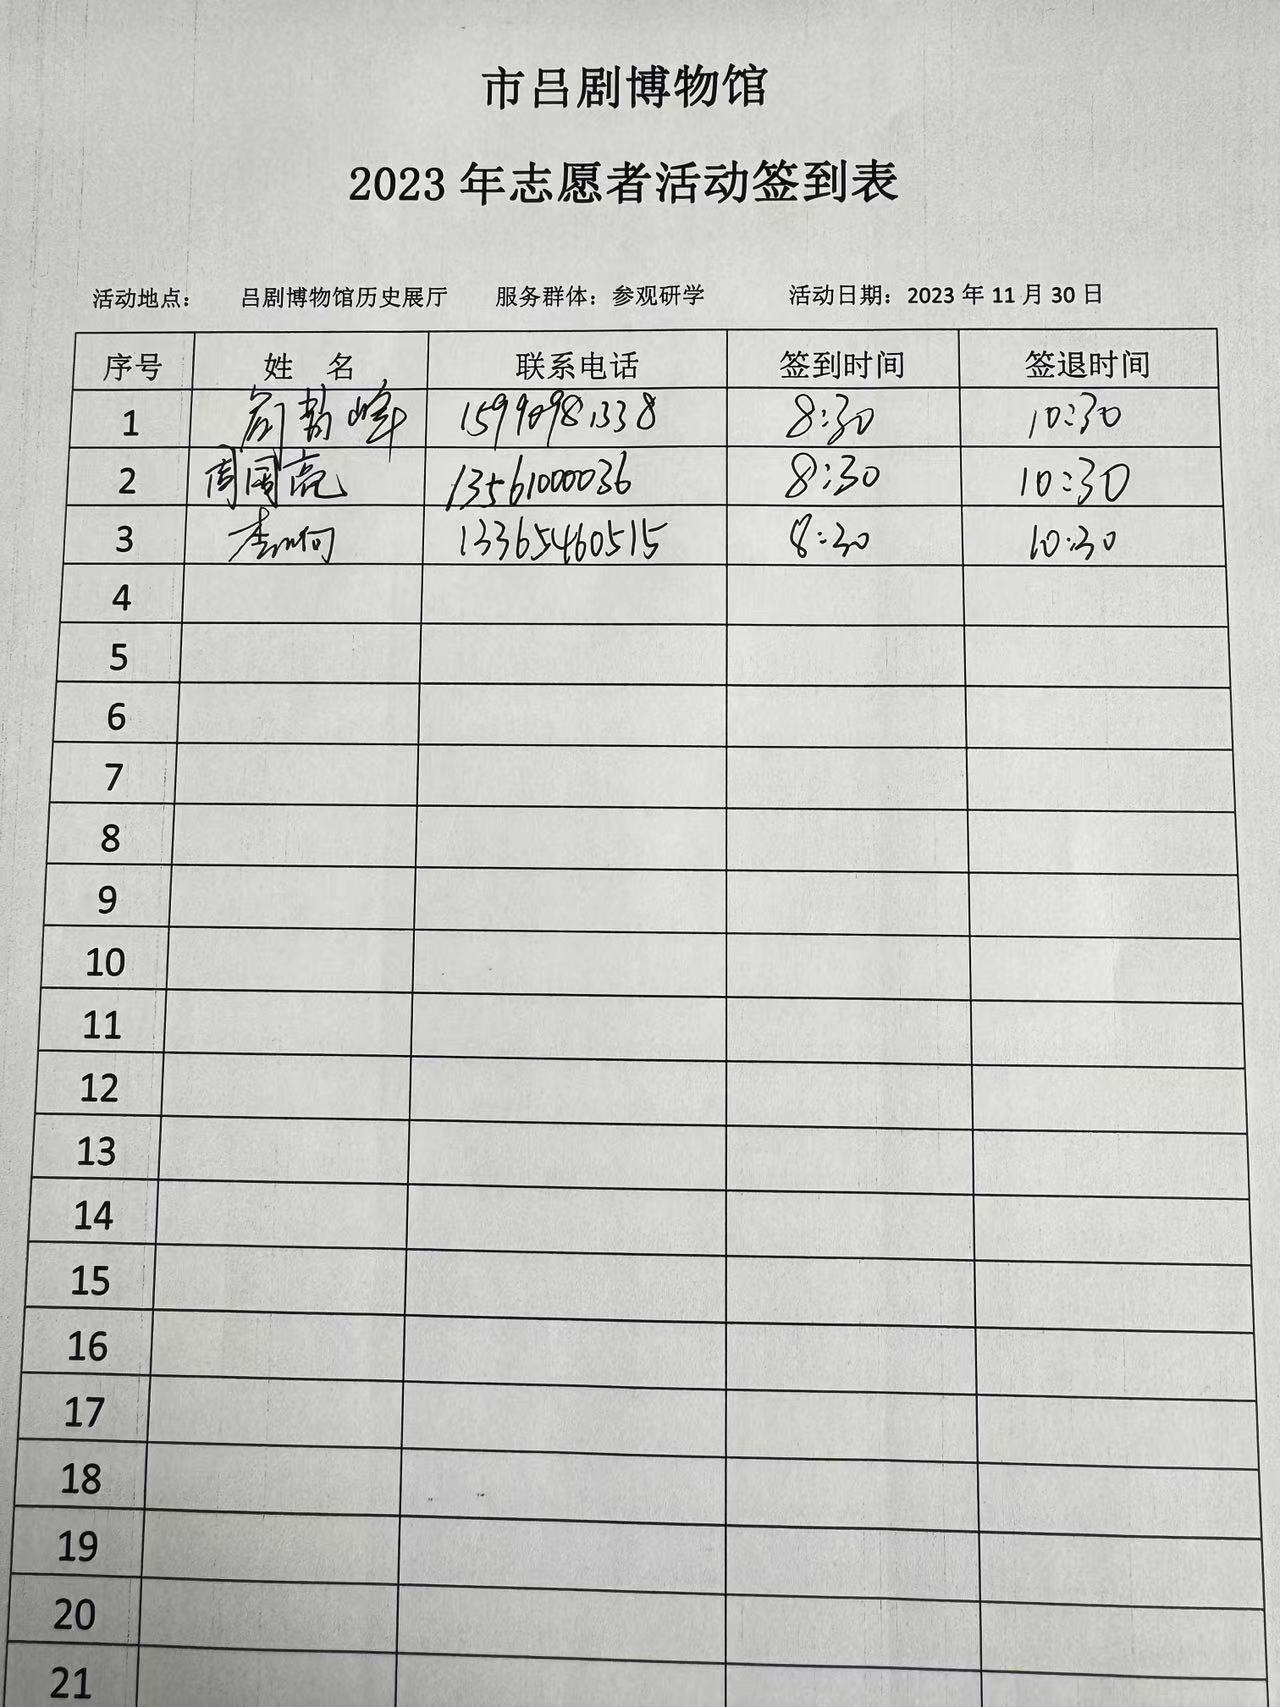 市吕剧博物馆
2023 年志愿者活动签到表
活动地点： 吕剧博物馆历史展厅 服务群体：参观研学 活动日期：2023 年 11 月 30 日
序号 姓 名 联系电话 签到时间 签退时间
1 峰 8:30 10:30
2 周国亮 13561000036 8:30 10:30
3 李 13365460515 8:30 10:30
4
5
6
7
8
9
10
11
12
13
14
15
16
17
18
19
20
21